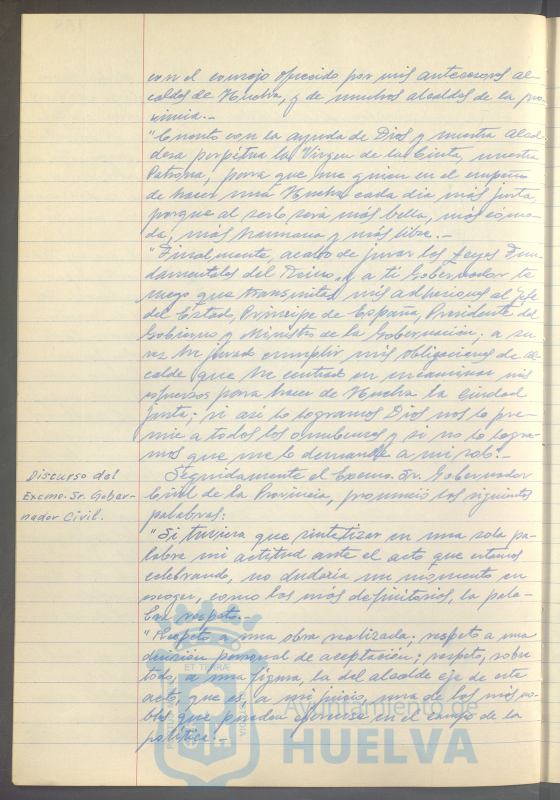 con el consejo ofrecido por mis antecesores al-
caldes de Huelva, y de muchos alcaldes de la pro-
vincia.-
"Cuento con la ayuda de Dios y nuestra Alcal-
desa perpétua la Virgen de la Cinta, nuestra
Patrona, para que me guíen en el empeño
de hacer una Huelva cada día más justa,
porque al serlo será más bella, más cómo-
da, más humana y más libre.-
"Finalmente, acabo de jurar las Leyes Fun-
damentales del Reino, y a ti Gobernador te
ruego que transmitas mis adhesiones al Jefe
del Estado, Príncipe de España, Presidente del
Gobierno y Ministro de la Gobernación; a su
vez he jurado cumplir mis obligaciones de Al-
calde que he centrado en encaminar mis
esfuerzos para hacer de Huelva la ciudad
justa; si así lo logramos Dios nos lo pre-
mie a todos los onubenses y si no lo logra-
mos que me lo demande a mi solo".-
Discurso del
Excmo. Sr. Gober-
nador Civil.
Seguidamente el Excmo. Sr. Gobernador
Civil de la Provincia, pronunció las siguientes
palabras:
"Si tuviera que sintetizar en una sola pa-
labra mi actitud ante el acto que estamos
celebrando, no dudaría un momento en
escoger, como las más definitorias, la pala-
bra respeto.-
"Respeto a una obra realizada; respeto a una
decisión personal de aceptación; respeto, sobre
todo, a una figura, la del alcalde eje de este
acto, que es, a mi juicio, una de las más no-
bles que pueden ejercerse en el campo de la
política.-
Ayuntamiento de
HUELVA